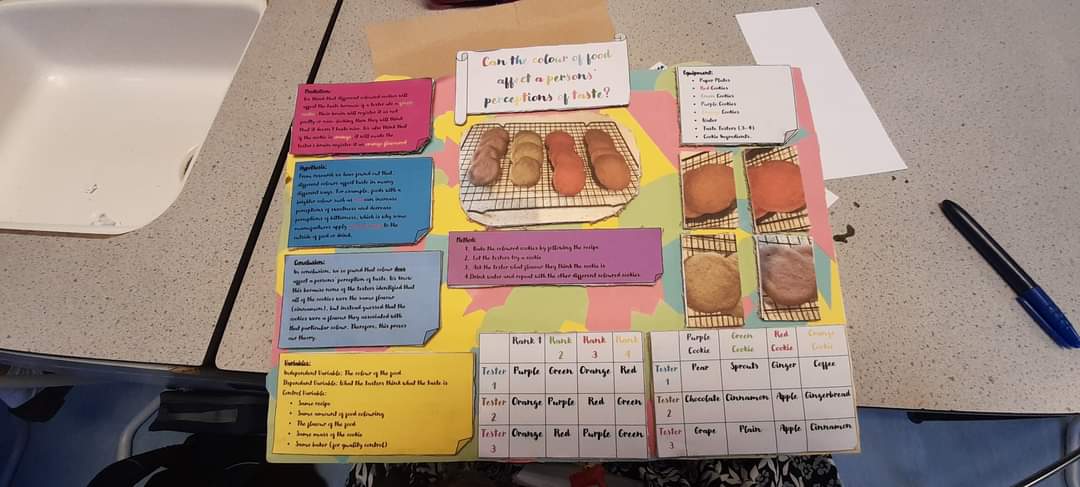 Can the colour of food
affect a persons'
perceptions of taste?
Prediction:
We think that different coloured cookies will
affect the taste because if a tester ate a green
cookie, their brain will register it as not
that it doesn't taste nice. We also think that
if the cookie is orange, it will make the
tester's brain register it as orange flavoured
Hypothesis:
From research we have found out that
different colours affect taste in many
different ways. For example, foods with a
brighter colour such as red can increase
perceptions of sweetness and decrease
perceptions of bitterness, which is why some
manufacturers apply to the
outside of food or drink.
Conclusion:
In conclusion, we found that colour does
affect a persons' perception of taste. We know
this because none of the testers identified that
all of the cookies were the same flavour
(cinnamon), but instead guessed that the
cookies were a flavour they associated with
that particular colour. Therefore, this proves
our theory.
Variables:
Independent Variable: The colour of the food
Dependent Variable: What the testers think what the taste is
Control Variable:
• Same recipe
• Same amount of food colouring
• The flavour of the food
• Same mass of the cookie
• Same baker (for quality control)
Method:
1. Bake the coloured cookies by following the recipe
2. Let the testers try a cookie
3. Ask the tester what flavour they think the cookie is
4. Drink water and repeat with the other different coloured cookies
Equipment:
• Paper Plates
• Red Cookies
• Green Cookies
• Purple Cookies
• Cookies
• Water
• Taste Testers (3-4)
• Cookie Ingredients
Rank 1 Rank 2 Rank 3 Rank 4
Tester 1 Purple Green Orange Red
Tester 2 Orange Purple Red Green
Tester 3 Orange Red Purple Green
Purple Cookie Green Cookie Red Cookie Orange Cookie
Tester 1 Pear Sprouts Ginger Coffee
Tester 2 Chocolate Cinnamon Apple Gingerbread
Tester 3 Grape Plain Apple Cinnamon